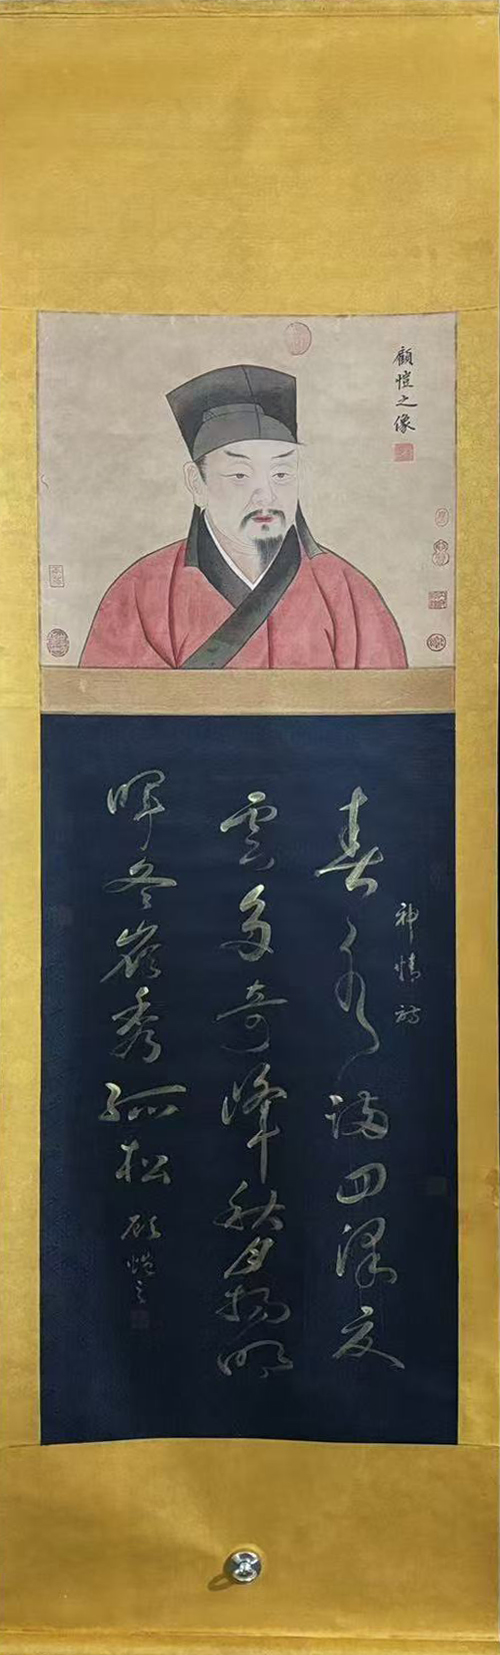 顧愷之像
神情詩
春水满四澤夏
雲多奇峰秋月揚明
暉冬嶺秀孤松
顾愷之